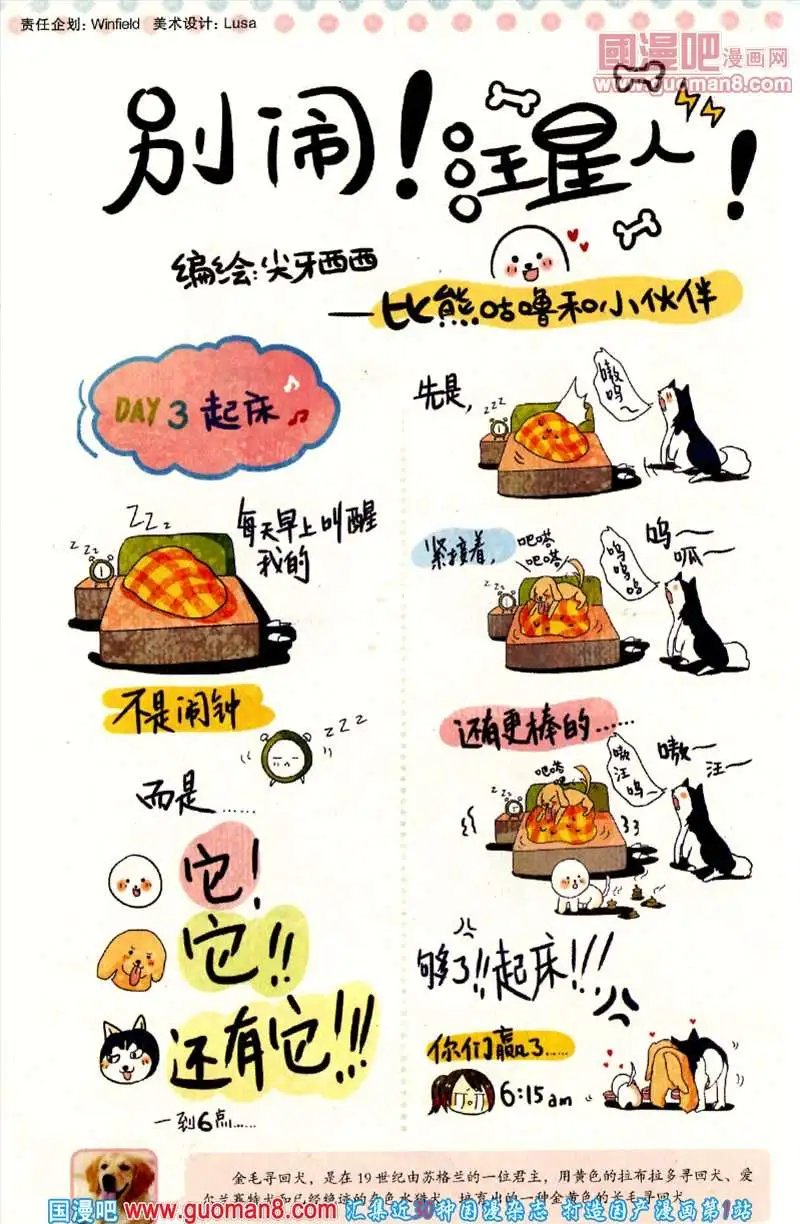 责任企划：Winfield 美术设计：Lusa
國漫吧漫画网
www.guoman8.com
别闹！汪星人！
编绘：尖牙西西
—比熊咕噜和小伙伴
DAY 3 起床
zzz
每天早上叫醒
我的
不是闹钟
zzz
而是……
它！
它！！
还有它！！！
一到6点……
先是，
zzz
嗷呜～
紧接着，
吧嗒
吧嗒
呜呜呜
呜～
呱～
还有更棒的……
吧嗒
吧嗒
嗷汪呜～
嗷～
汪～
够了！！起床！！！
你们赢了……
6:15am
金毛寻回犬，是在19世纪由苏格兰的一位君主，用黄色的拉布拉多寻回犬、爱
尔兰赛特犬和已经绝迹的杂色水猎犬，培育出的一种金黄色的长毛寻回犬
国漫吧 www.guoman8.com 汇集近30种国漫杂志 打造国产漫画第1站